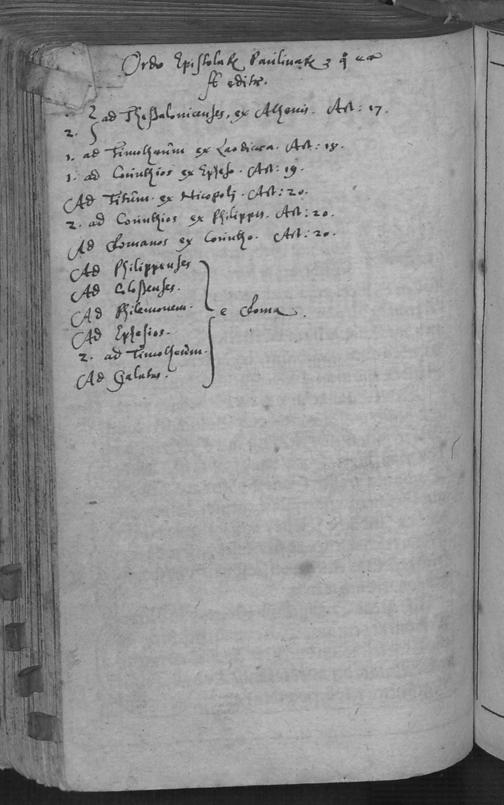 Ordo Epistolarum Paulinarum
sunt editæ.
1.
2. } ad Thessalonicenses, ex Athenis. Act: 17.
1. ad Timotheum ex Laodicea. Act: 18.
1. ad Corinthios ex Epheso. Act: 19.
Ad Titum. ex Nicopoli. Act: 20.
2. ad Corinthios ex Philippis. Act: 20.
Ad Romanos ex Corintho. Act: 20.
Ad Philippenses
Ad Colossenses.
Ad Philemonem. } e Roma.
Ad Ephesios.
2. ad Timotheum.
Ad Galatas.